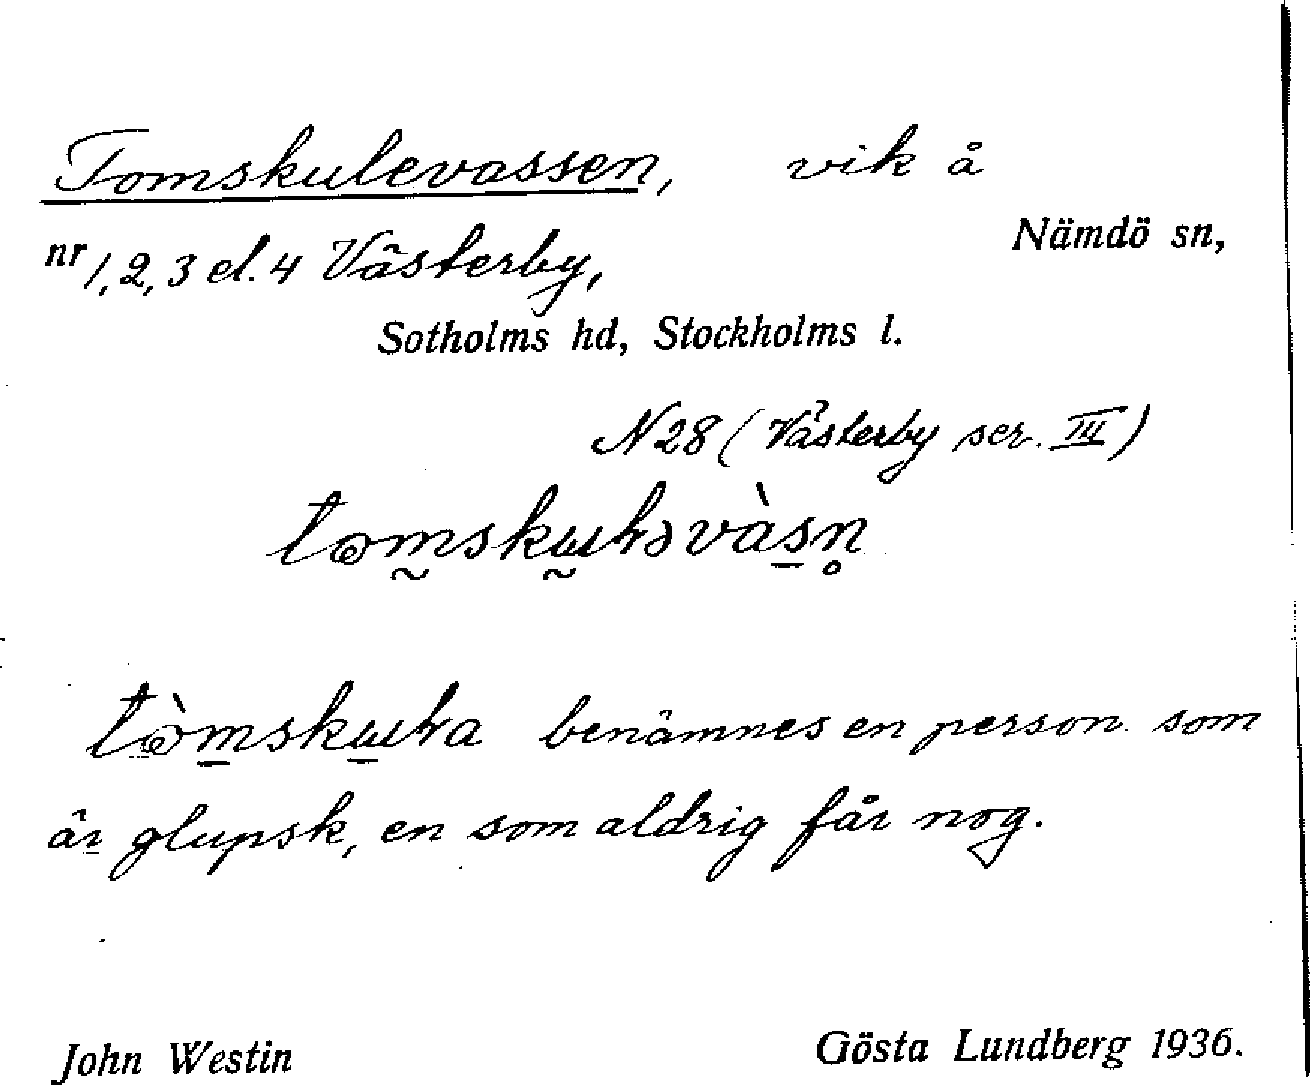 Tomskulevassen, vik å
Nämdö sn,
nr 1, 2, 3 el. 4 Västerby,
Sotholms hd, Stockholms l.
N 28 (Västerby ser. III)
benämnes en person som
är glupsk, en som aldrig får nog.
John Westin Gösta Lundberg 1936.